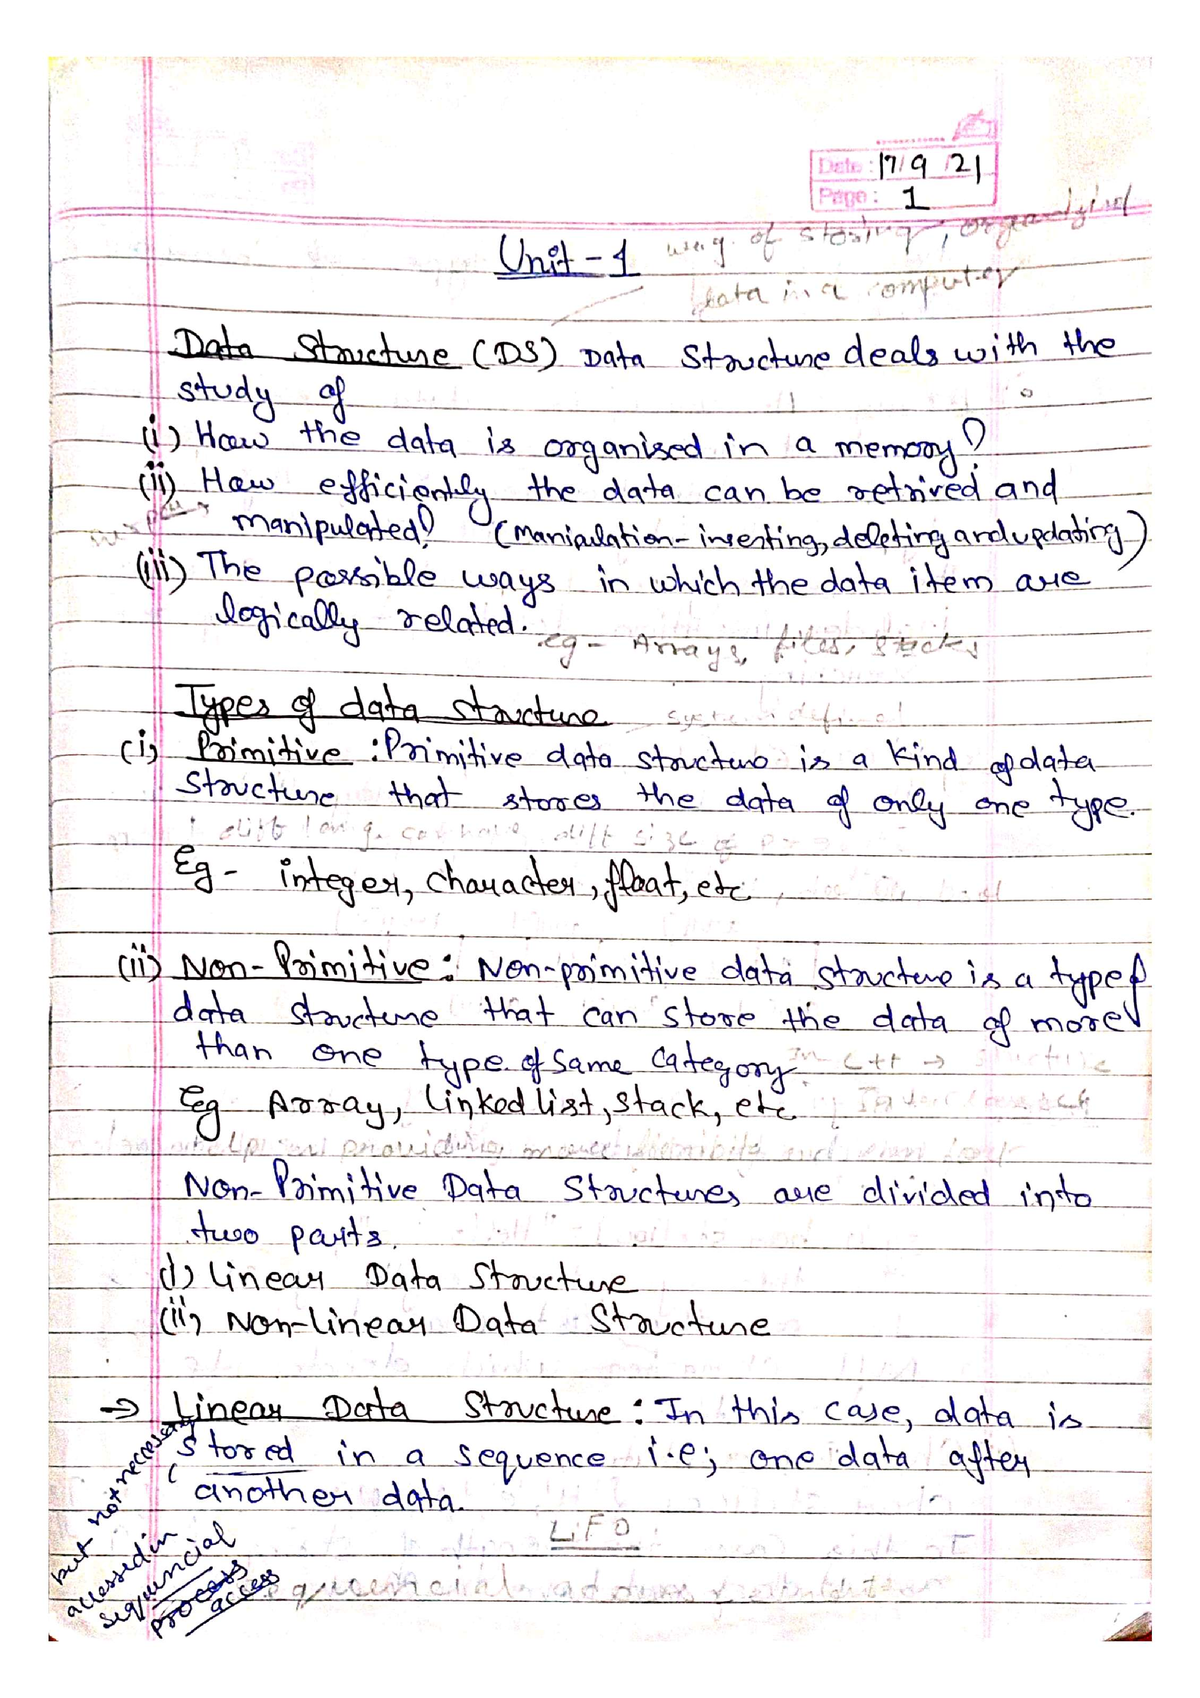 Date : 17/9/21
Page : 1
Unit - 1
way of storing, organizing
data in a computer
Data Structure (DS) Data Structure deals with the
study of
(i) How the data is organised in a memory?
(ii) How efficiently the data can be retrived and
manipulated? (manipulation - inserting, deleting and updating)
(iii) The possible ways in which the data item are
logically related.
eg - Arrays, files, stacks
Types of data structure
system defined
(i) Primitive : Primitive data structure is a kind of data
structure that stores the data of only one type.
diff lang. can have diff size of
Eg - integer, character, float, etc
(ii) Non-Primitive : Non-primitive data structure is a type of
data structure that can store the data of more
than one type of same category.
In C++ →
Eg Array, linked list, stack, etc
Non-Primitive Data Structures are divided into
two parts.
i) linear Data Structure
(ii) Non-linear Data Structure
→ Linear Data Structure : In this case, data is
stored in a sequence i.e; one data after
another data.
but not necessary
accessed in
sequencial
process
access
LIFO